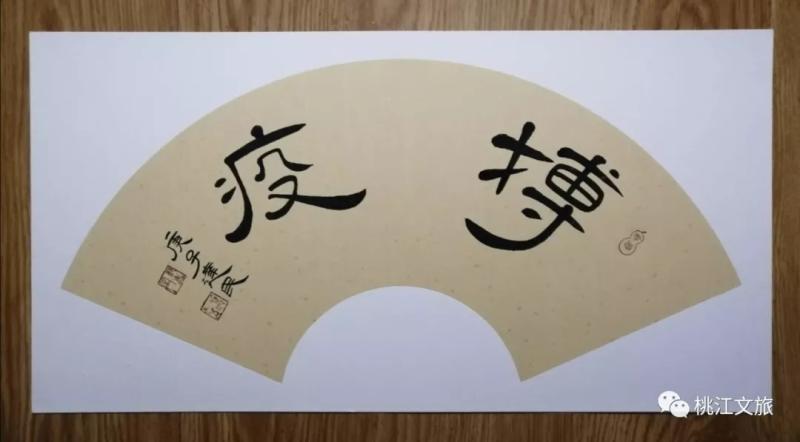 搏疫
庚子建民
桃江文旅